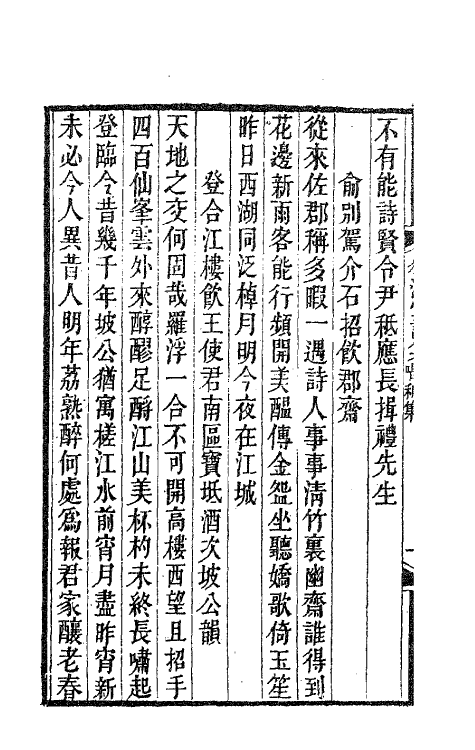 不有能詩賢令尹秪應長揖禮先生
俞別駕介石招飲郡齋
從來佐郡稱多暇一遇詩人事事淸竹裏幽齋誰得到
花邊新雨客能行頻開美醞傳金盌坐聽嬌歌倚玉笙
昨日西湖同泛棹月明今夜在江城
登合江樓飲王使君南區寶坻酒次坡公韻
天地之交何固哉羅浮一合不可開高樓西望且招手
四百仙峯雲外來醇醪足酹江山美杯杓未終長嘯起
登臨今昔幾千年坡公猶寓槎江水前宵月盡昨宵新
未必今人異昔人明年荔熟醉何處爲報君家釀老春